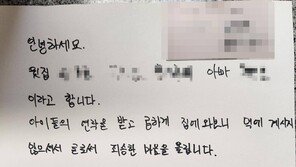 안녕하세요.
윗집 아빠
이라고 합니다.
아이들의 연락을 받고 급하게 집에 와보니 댁에 계시지
않으셔서 글로써 죄송한 마음을 올립니다.